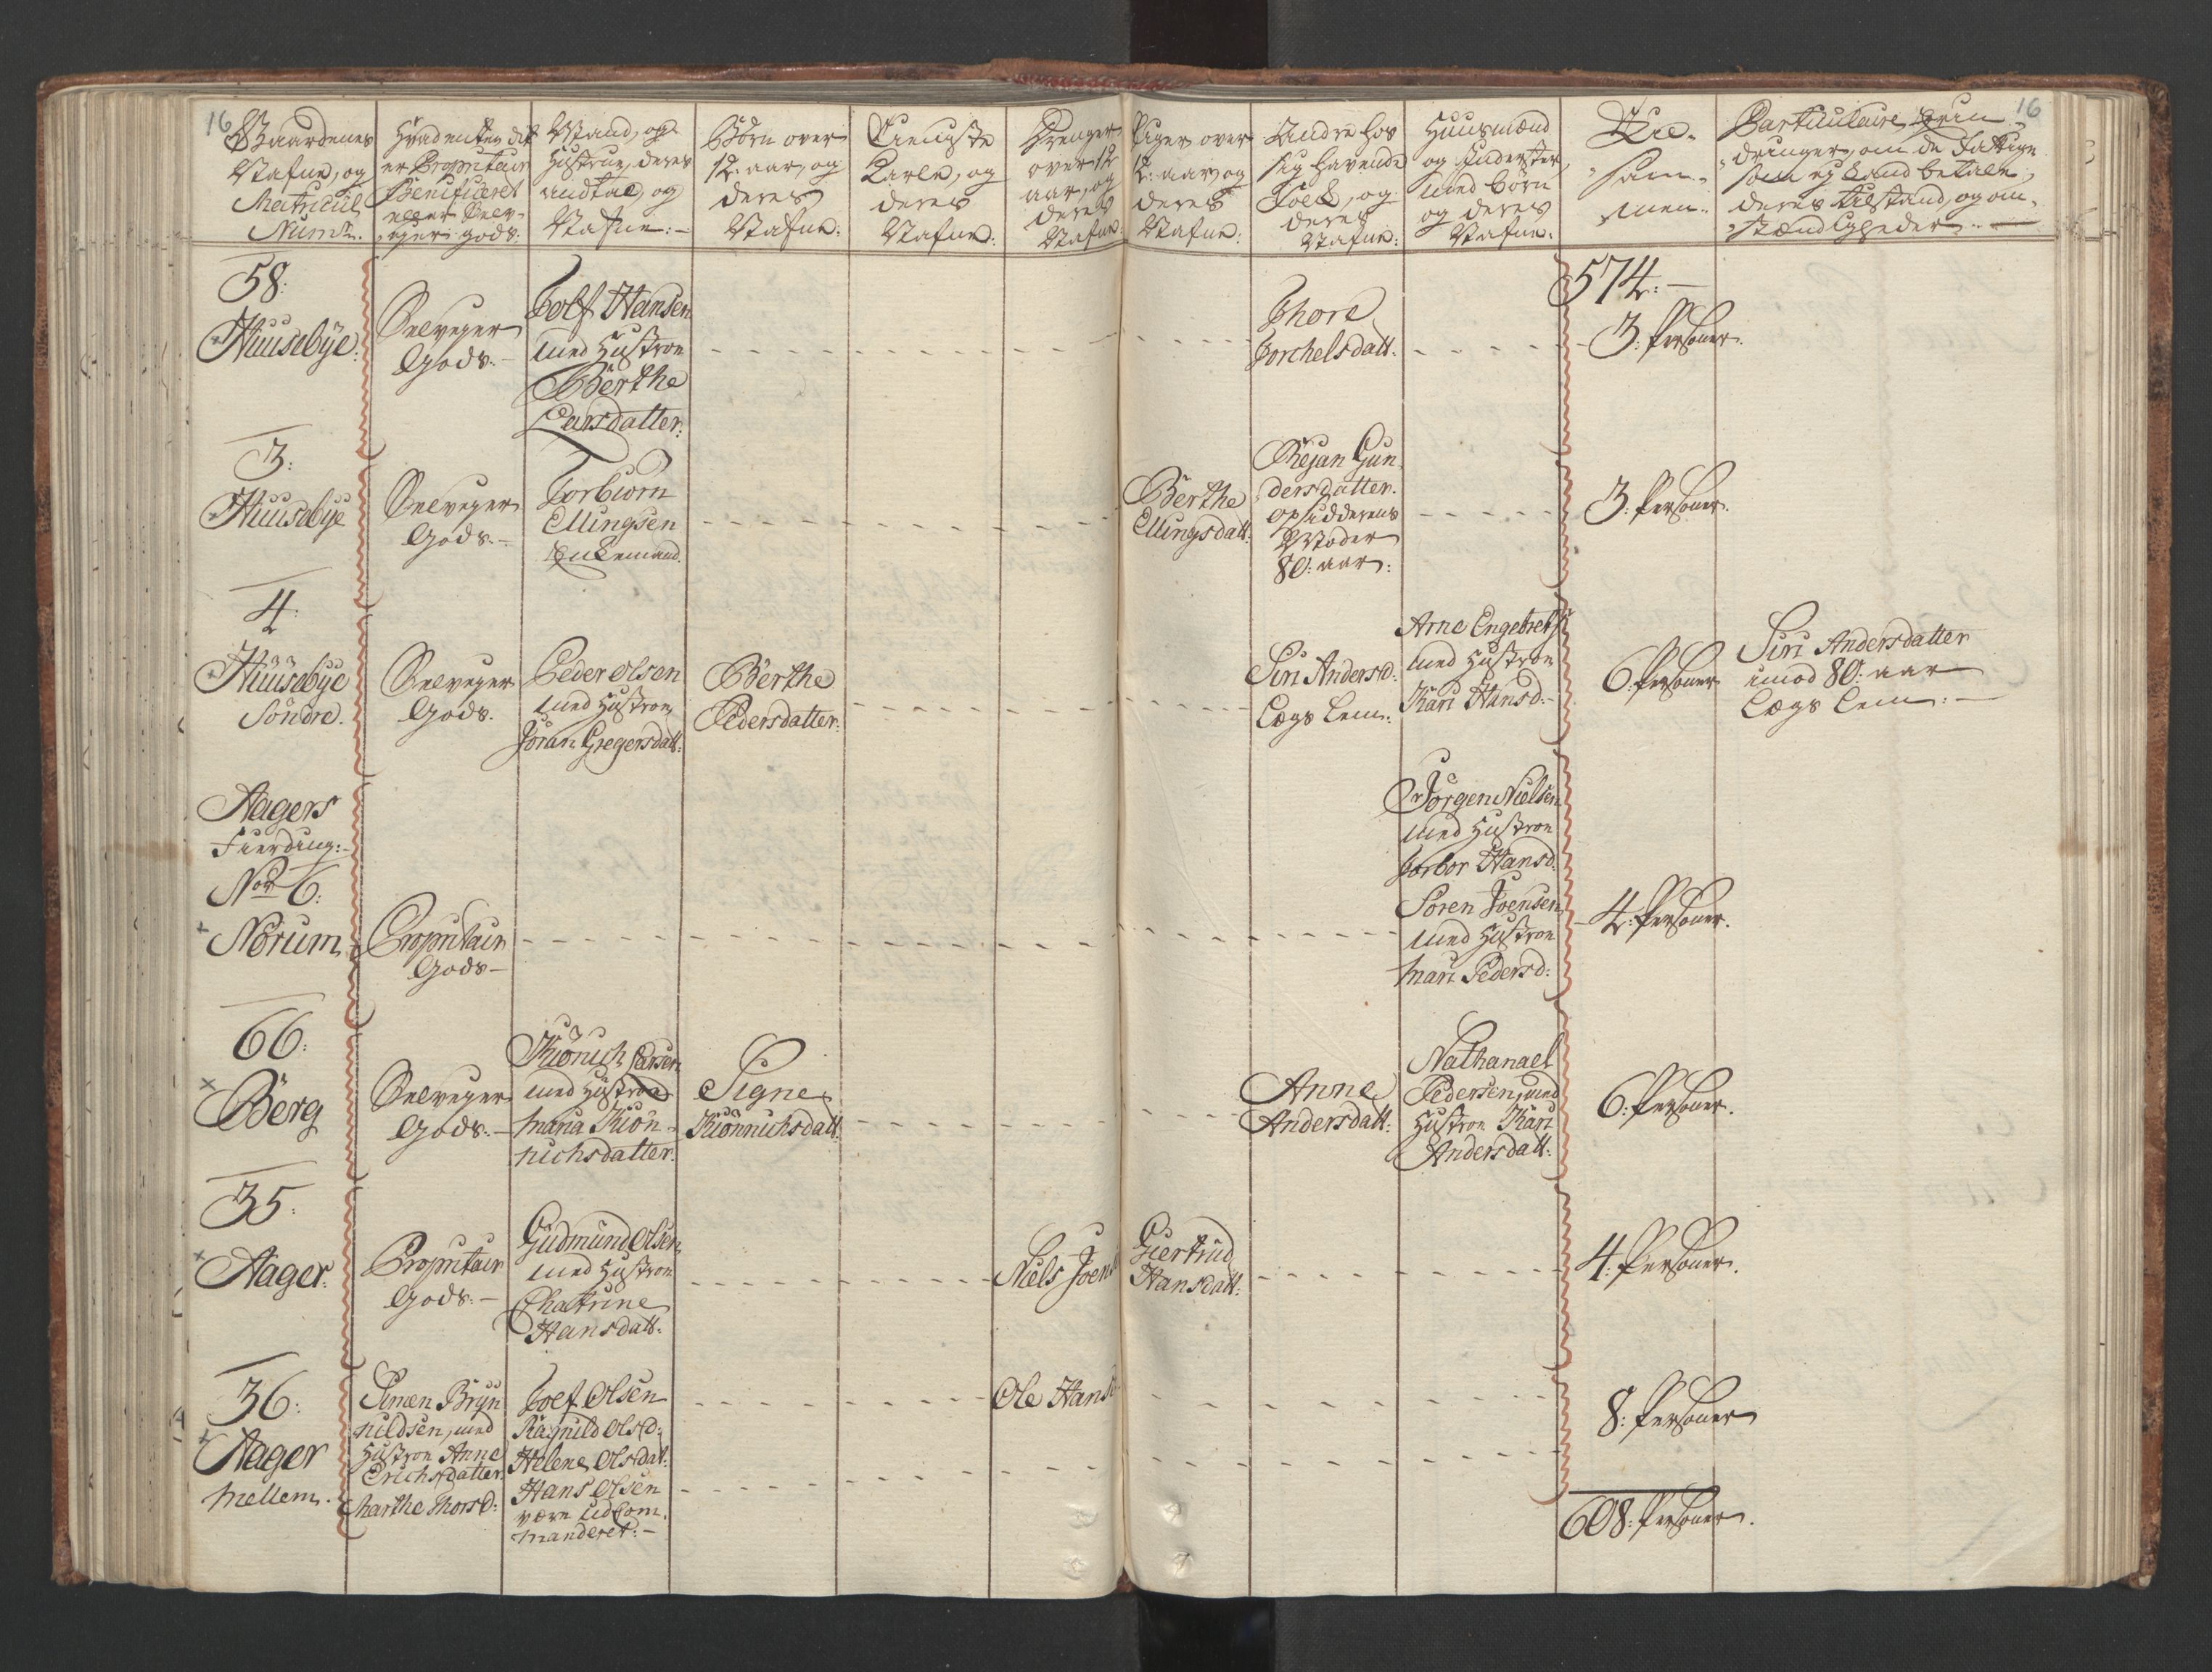 16
Gaardenes
Nafne, og
Matricul
Num:
Hvad enten det
er Proprietair
Beneficeret
eller Selv-
ejer gods:
Mand, og
Hustrue, deres
andtal, og
Nafne:-
Børn over
12: aar, og
deres
Nafne:
Tieniste
Karle, og
deres
Nafne:
Drenge
over 12
aar, og
deres
Nafne:
Piger over
12: aar, og
deres
Nafne:
Andre hos
sig havende
Folk, og
deres
Nafne:
Huusmænd
og Inderster,
med børn
og deres
Nafne:
Til-
sam-
men:
Particulaire Erin-
dringer, om de Fattige
som ej kand betale,
deres tilstand, og om-
stændligheder:
16
58:
Huusebÿe:
Selvejer
Gods:-
Tolf Hansen
med Hustroe
Berthe
Larsdatter:
Thore
Torchelsdatt:
574:-
3: Persohner.
3:
Huusebÿe
Selvejer
Gods:-
Torbiørn
Ellingsen
Enkemand.
Berthe
Ellingsdatt:
Rejan Gun
dersdatter.
Opsidderens
Moder
80: aar:
3: Persohner.
4:
Huusebÿe
Søndre.
Selvejer
Gods.
Peder Olsen
med Hustroe
Jøran Gregersdatt:
Berthe
Pedersdatter:
Siri Andersd:
Lægs Lem:
Arne Engebrets:
med Hustroe
Kari Hansd:-
6: Persohner
Siri Andersdatter
imod 80: aar
Lægs Lem:-
Aagers
Fierding:-
No 6:
Nørum
Proprietair
Gods-
Jørgen Nielsen
med Hustroe
Torbor Hansd:
Søren Joensen
med Hustroe
Mari Pedersd:
4: Persohner.
66:
Berg
Selvejer
Gods:-
Kiønich Larsen
med Hustroe
Maria Kiøn-
nichsdatter:
Signe
Kiønnichsdatt:
Anne
Andersdatt:
Nathanael
Pedersen, med
Hustroe Kari
Andersdatt:
6: Persohner.
35:
Aager:
Proprietair
Gods:-
Gudmund Olsen
med Hustroe
Chatrine
Hansdatt:
Niels Joens
Giertrud
Hansdatt:
4: Persohner.
36:
Aager
Mellem.
Simen Bryn
nildsen, med
Hustroe Anne
Erichsdatter
Marthe Thorsd:
Tolf Olsen
Ragnild Olsd:
Helene Olsdat:
Hans Olsen
være udcom
manderet:-
Ole Hans
8: Persohner
608: Persohner.